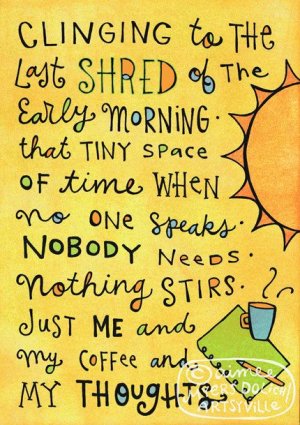 CLINGING to THE
Last SHRED of THE
Early MORNING.
that TINY SPACE
OF time WHEN
no ONE speaks.
NOBODY NEEDS.
Nothing STIRS.
JUST ME and
my COFFEE and
MY THOUGHTS
© aimee
ARTSYVILLE